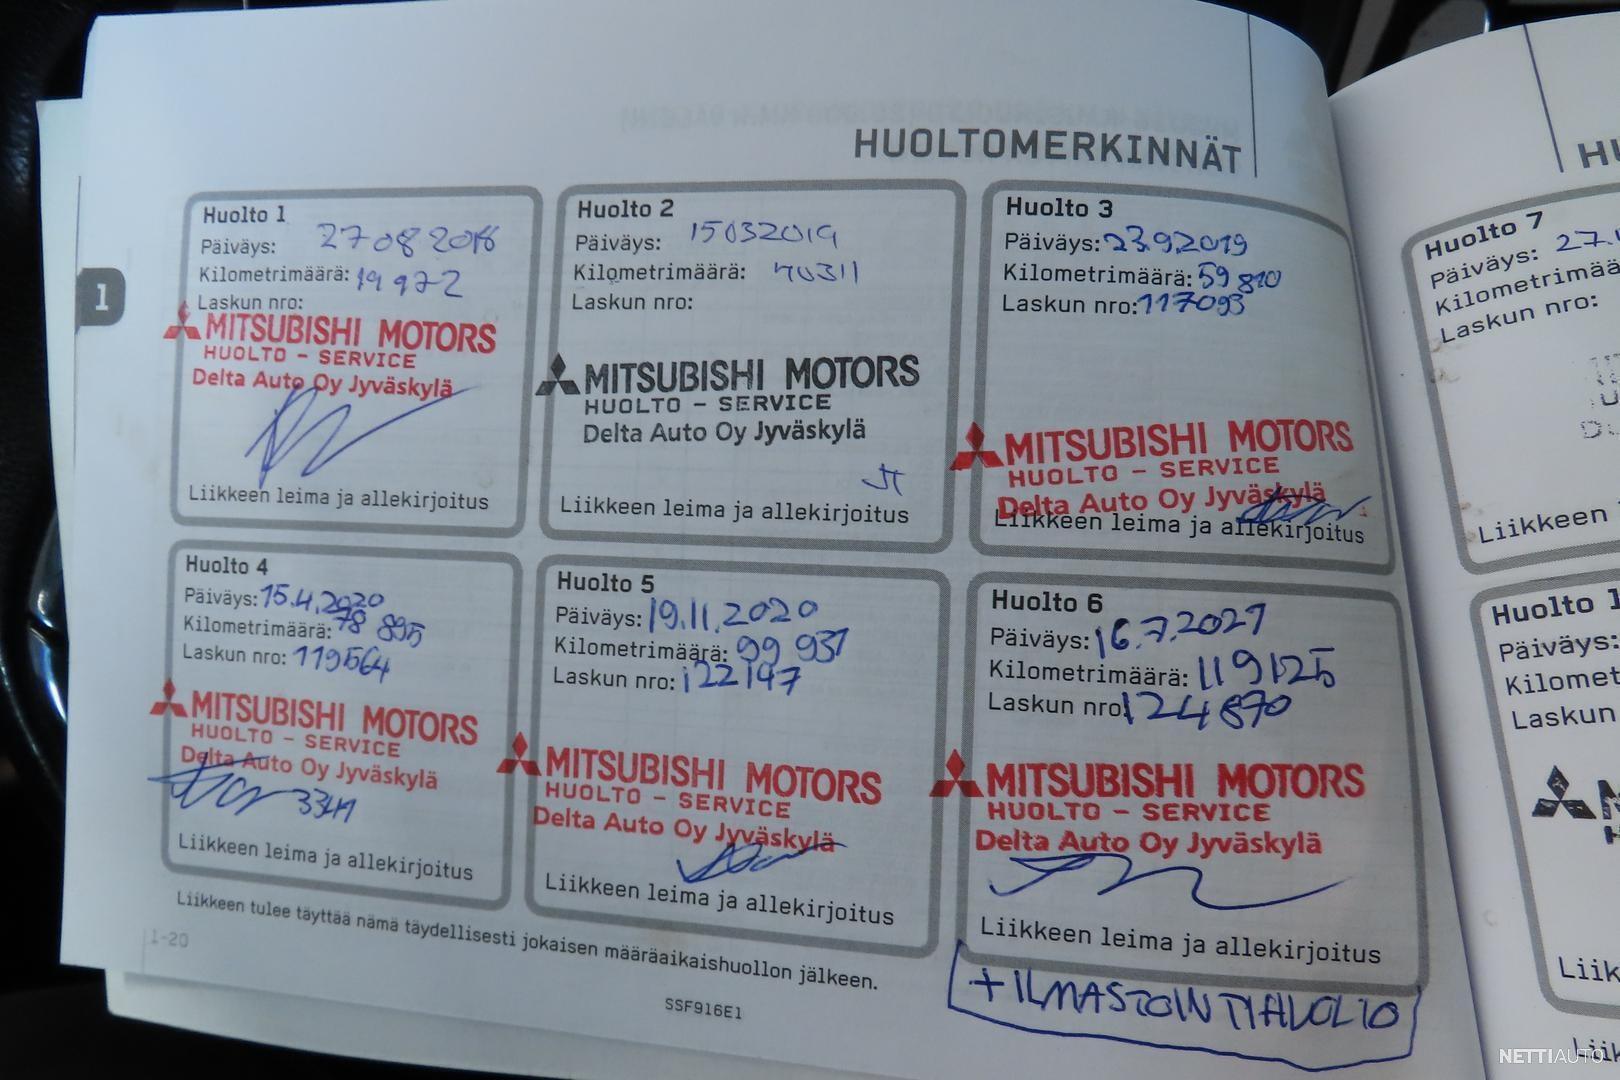 HUOLTOMERKINNÄT
1
Huolto 1
Päiväys: 27082018
Kilometrimäärä: 19972
Laskun nro:
MITSUBISHI MOTORS
HUOLTO - SERVICE
Delta Auto Oy Jyväskylä
Liikkeen leima ja allekirjoitus
Huolto 2
Päiväys: 15032019
Kilometrimäärä: 40311
Laskun nro:
MITSUBISHI MOTORS
HUOLTO - SERVICE
Delta Auto Oy Jyväskylä
JT
Liikkeen leima ja allekirjoitus
Huolto 3
Päiväys: 23.9.2019
Kilometrimäärä: 59 810
Laskun nro: 117093
MITSUBISHI MOTORS
HUOLTO - SERVICE
Delta Auto Oy Jyväskylä
Liikkeen leima ja allekirjoitus
Huolto 4
Päiväys: 15.4.2020
Kilometrimäärä: 78 895
Laskun nro: 119564
MITSUBISHI MOTORS
HUOLTO - SERVICE
Delta Auto Oy Jyväskylä
Liikkeen leima ja allekirjoitus
Huolto 5
Päiväys: 19.11.2020
Kilometrimäärä: 99 937
Laskun nro: 122147
MITSUBISHI MOTORS
HUOLTO - SERVICE
Delta Auto Oy Jyväskylä
Liikkeen leima ja allekirjoitus
Huolto 6
Päiväys: 16.7.2021
Kilometrimäärä: 119125
Laskun nro: 124870
MITSUBISHI MOTORS
HUOLTO - SERVICE
Delta Auto Oy Jyväskylä
Liikkeen leima ja allekirjoitus
+ ILMASTOINTIHUOLTO
Liikkeen tulee täyttää nämä täydellisesti jokaisen määräaikaishuollon jälkeen.
1-20
SSF916E1
Huolto 7
Päiväys: 27.
Kilometrimää
Laskun nro:
Liikkeen
Huolto 1
Päiväys:
Kilomet
Laskun
Liik
NETTIAUTO